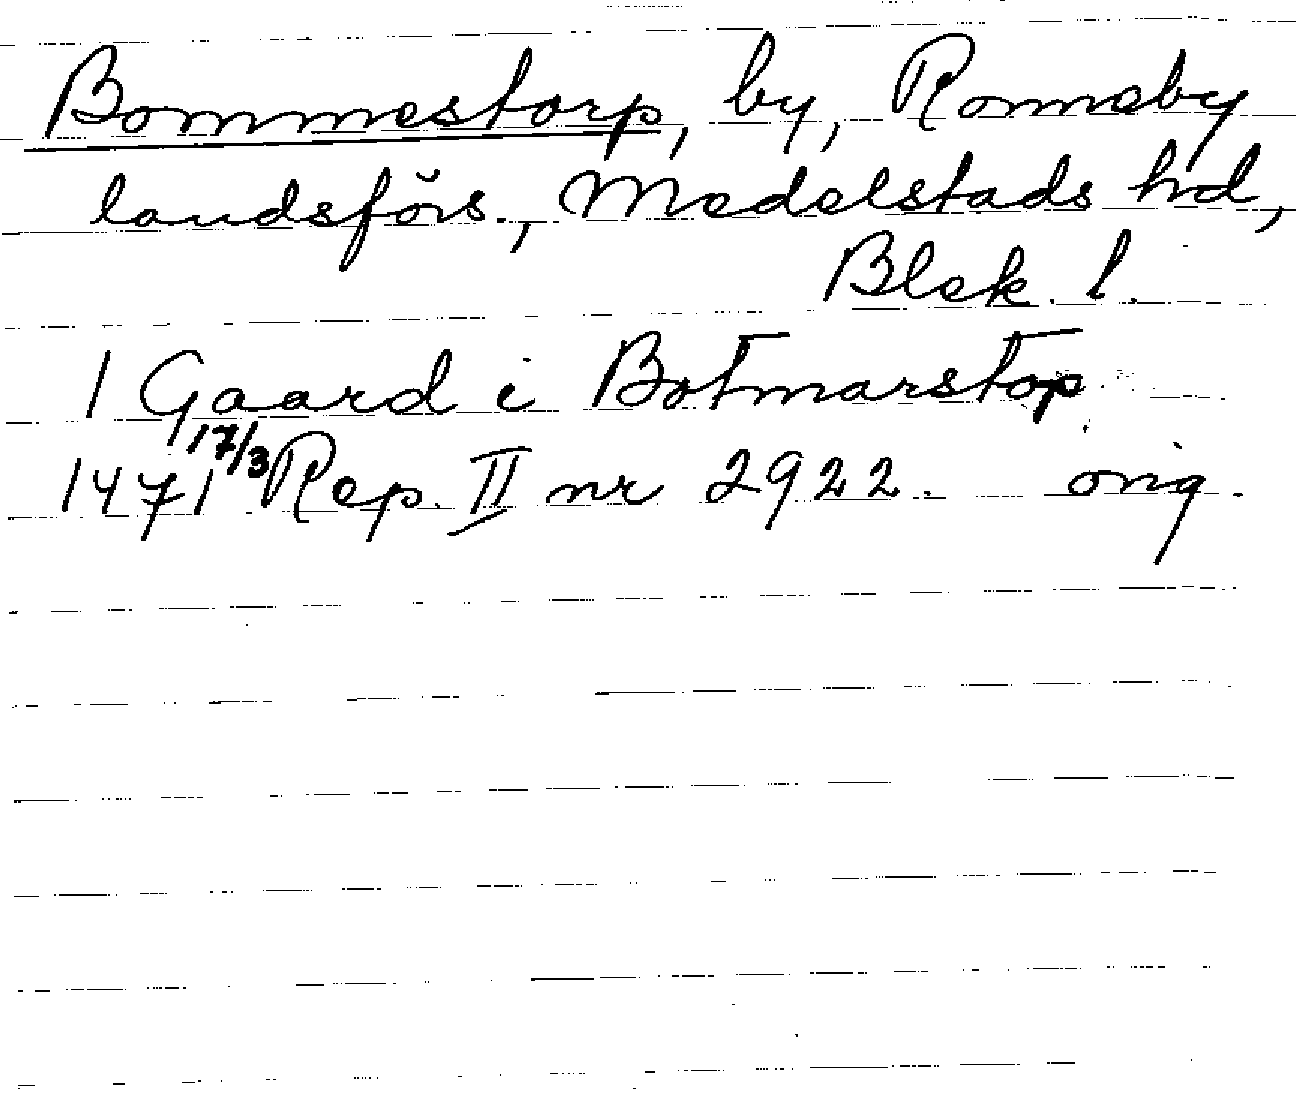 Bommestorp, by, Ronneby
landsförs., Medelstads hd,
Blek. l.
1 Gaard i Botmarstop
1471 17/3 Rep. II nr 2922. orig.